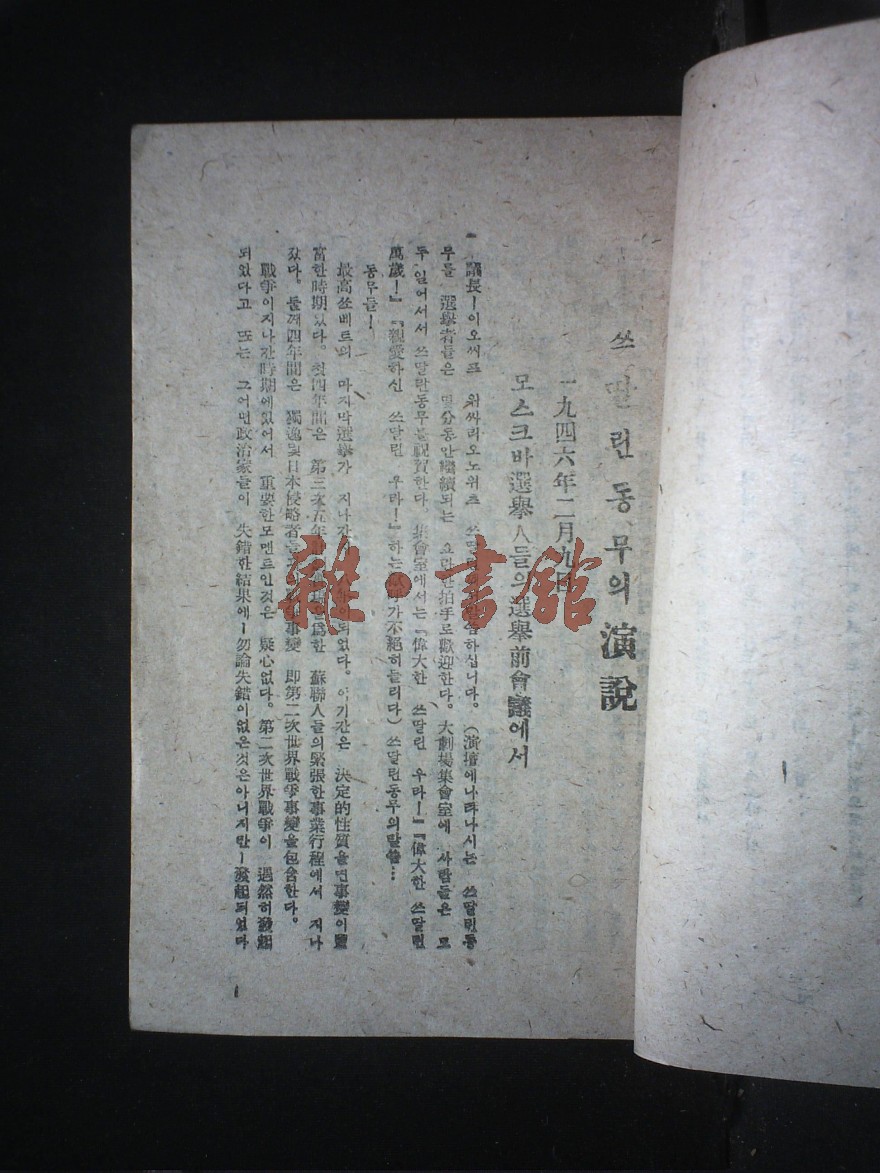 쓰딸린동무의 演說
一九四六年二月九日
모스크바選擧人들의選擧前會議에서
議長ー이오씨프 위싸리오노위츠 쓰딸린 하십니다。(演壇에나타나시는 쓰딸린동
무를 選擧者들은 몇分동안繼續되는 요란한拍手로歡迎한다。大劇場集會室에 사람들은 모
두 일어서서 쓰딸린동무를祝賀한다 集會室에서는『偉大한 쓰딸린 우라!』『偉大한 쓰딸린
萬歲!』『親愛하신 쓰딸린 우라!』하는 가不絕히들리다) 쓰딸린동무의말씀…
동무들!
最高쏘베트의 마지막選擧가 지나간 되었다。이기간은 決定的性質을띤事變이豐
富한時期였다。첫四年間은 第三次五年 爲한 蘇聯人들의緊張한事業行程에서 지나
갔다。둘째四年間은 獨逸및日本侵略者들 事變 即第二次世界戰爭事變을包含한다。
戰爭이지나간時期에있어서 重要한모멘트인것은 疑心없다。第二次世界戰爭이 遇然히發起
되었다고 또는 그어떤政治家들이 失錯한結果에ー勿論失錯이없은것은아니지만ー發起되었다
1
雜·書館